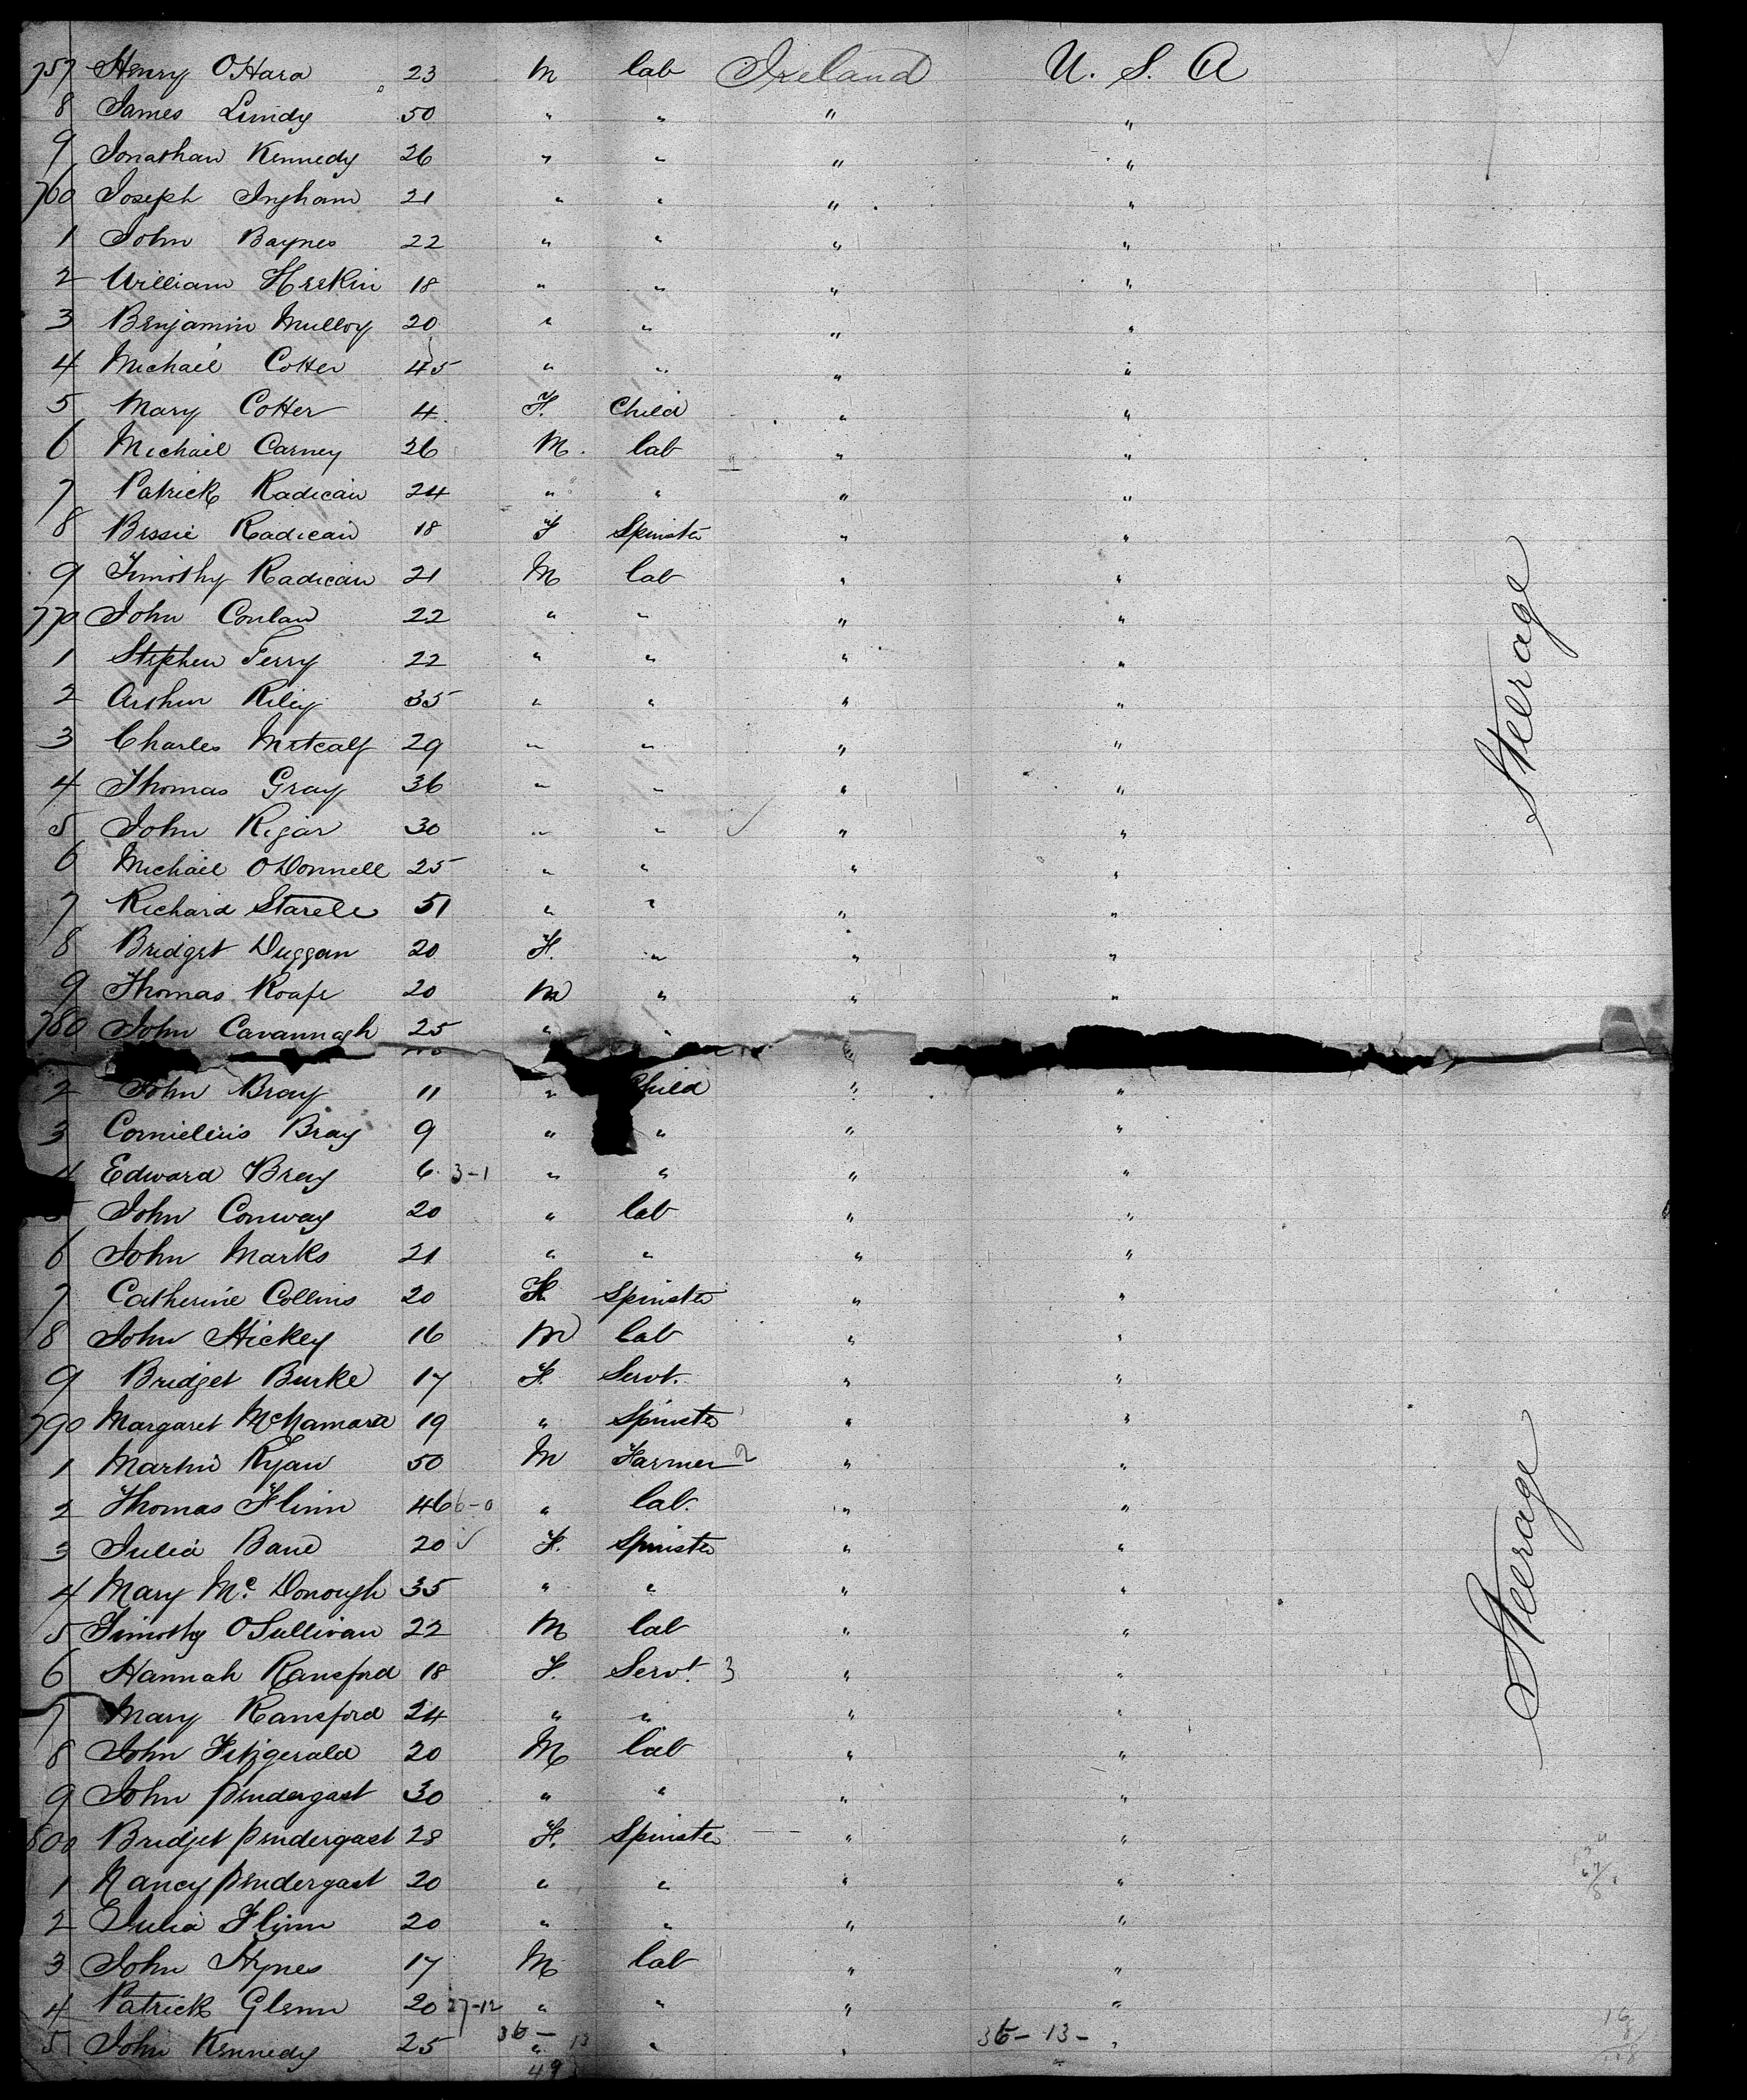 757 Henry OHara 23 M lab Ireland U. S. A
8 James Lundy 50 " " " "
9 Jonathan Kennedy 26 " " " "
760 Joseph Ingham 21 " " " "
1 John Baynes 22 " " " "
2 William Herkin 18 " " " "
3 Benjamin Mulloy 20 " " " "
4 Michael Cotter 45 " " " "
5 Mary Cotter 4 F. Child " "
6 Michael Carney 26 M. lab " "
7 Patrick Radican 24 " " " "
8 Bessie Radican 18 F Spinster " "
9 Timothy Radican 21 M lab " "
770 John Conlan 22 " " " "
1 Stephen Terry 22 " " " "
2 Arthur Riley 35 " " " "
3 Charles Metcalf 29 " " " "
4 Thomas Gray 36 " " " "
5 John Regan 30 " " " "
6 Michael ODonnell 25 " " " "
7 Richard 51 " " " "
8 Bridget Duggan 20 F. " " "
9 Thomas Roafe 20 M " " "
780 John Cavannagh 25 " "
2 John Bray 11 " Child " "
3 Cornielius Bray 9 " " " "
4 Edward Bray 6 3-1 " " " "
5 John Conway 20 " lab " "
6 John Marks 21 " " " "
7 Catherine Collins 20 F. Spinster " "
8 John Hickey 16 M lab " "
9 Bridget Burke 17 F. Servt. " "
790 Margaret McNamara 19 " Spinster " "
1 Martin Ryan 50 M Farmer 2 " "
2 Thomas Flinn 46 6-0 " lab. " "
3 Julia Bane 20 F. Spinster " "
4 Mary Mc Donough 35 " " " "
5 Timothy OSullivan 22 M lab " "
6 Hannah Ransford 18 F. Servt. 3 " "
7 Mary Ransford 24 " " " "
8 John Fitzgerald 20 M lab " "
9 John Pendergast 30 " " " "
800 Bridjet Pendergast 28 F. Spinster " "
1 Nancy Pendergast 20 " " " "
2 Julia Flinn 20 " " " "
3 John Hynes 17 M lab " "
4 Patrick Glenn 20 27-12 " " " "
36- 13 36- 13-
5 John Kennedy 25 " " " "
49
Steerage
Steerage